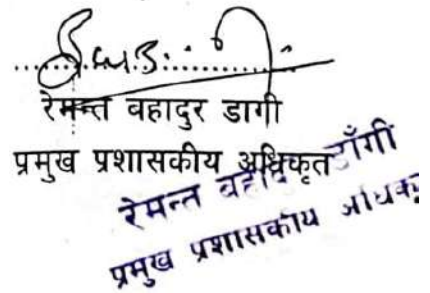 रेमन्त वहादुर डागी
प्रमुख प्रशासकीय अधिकृत
रेमन्त डाँगी
प्रमुख प्रशासकीय